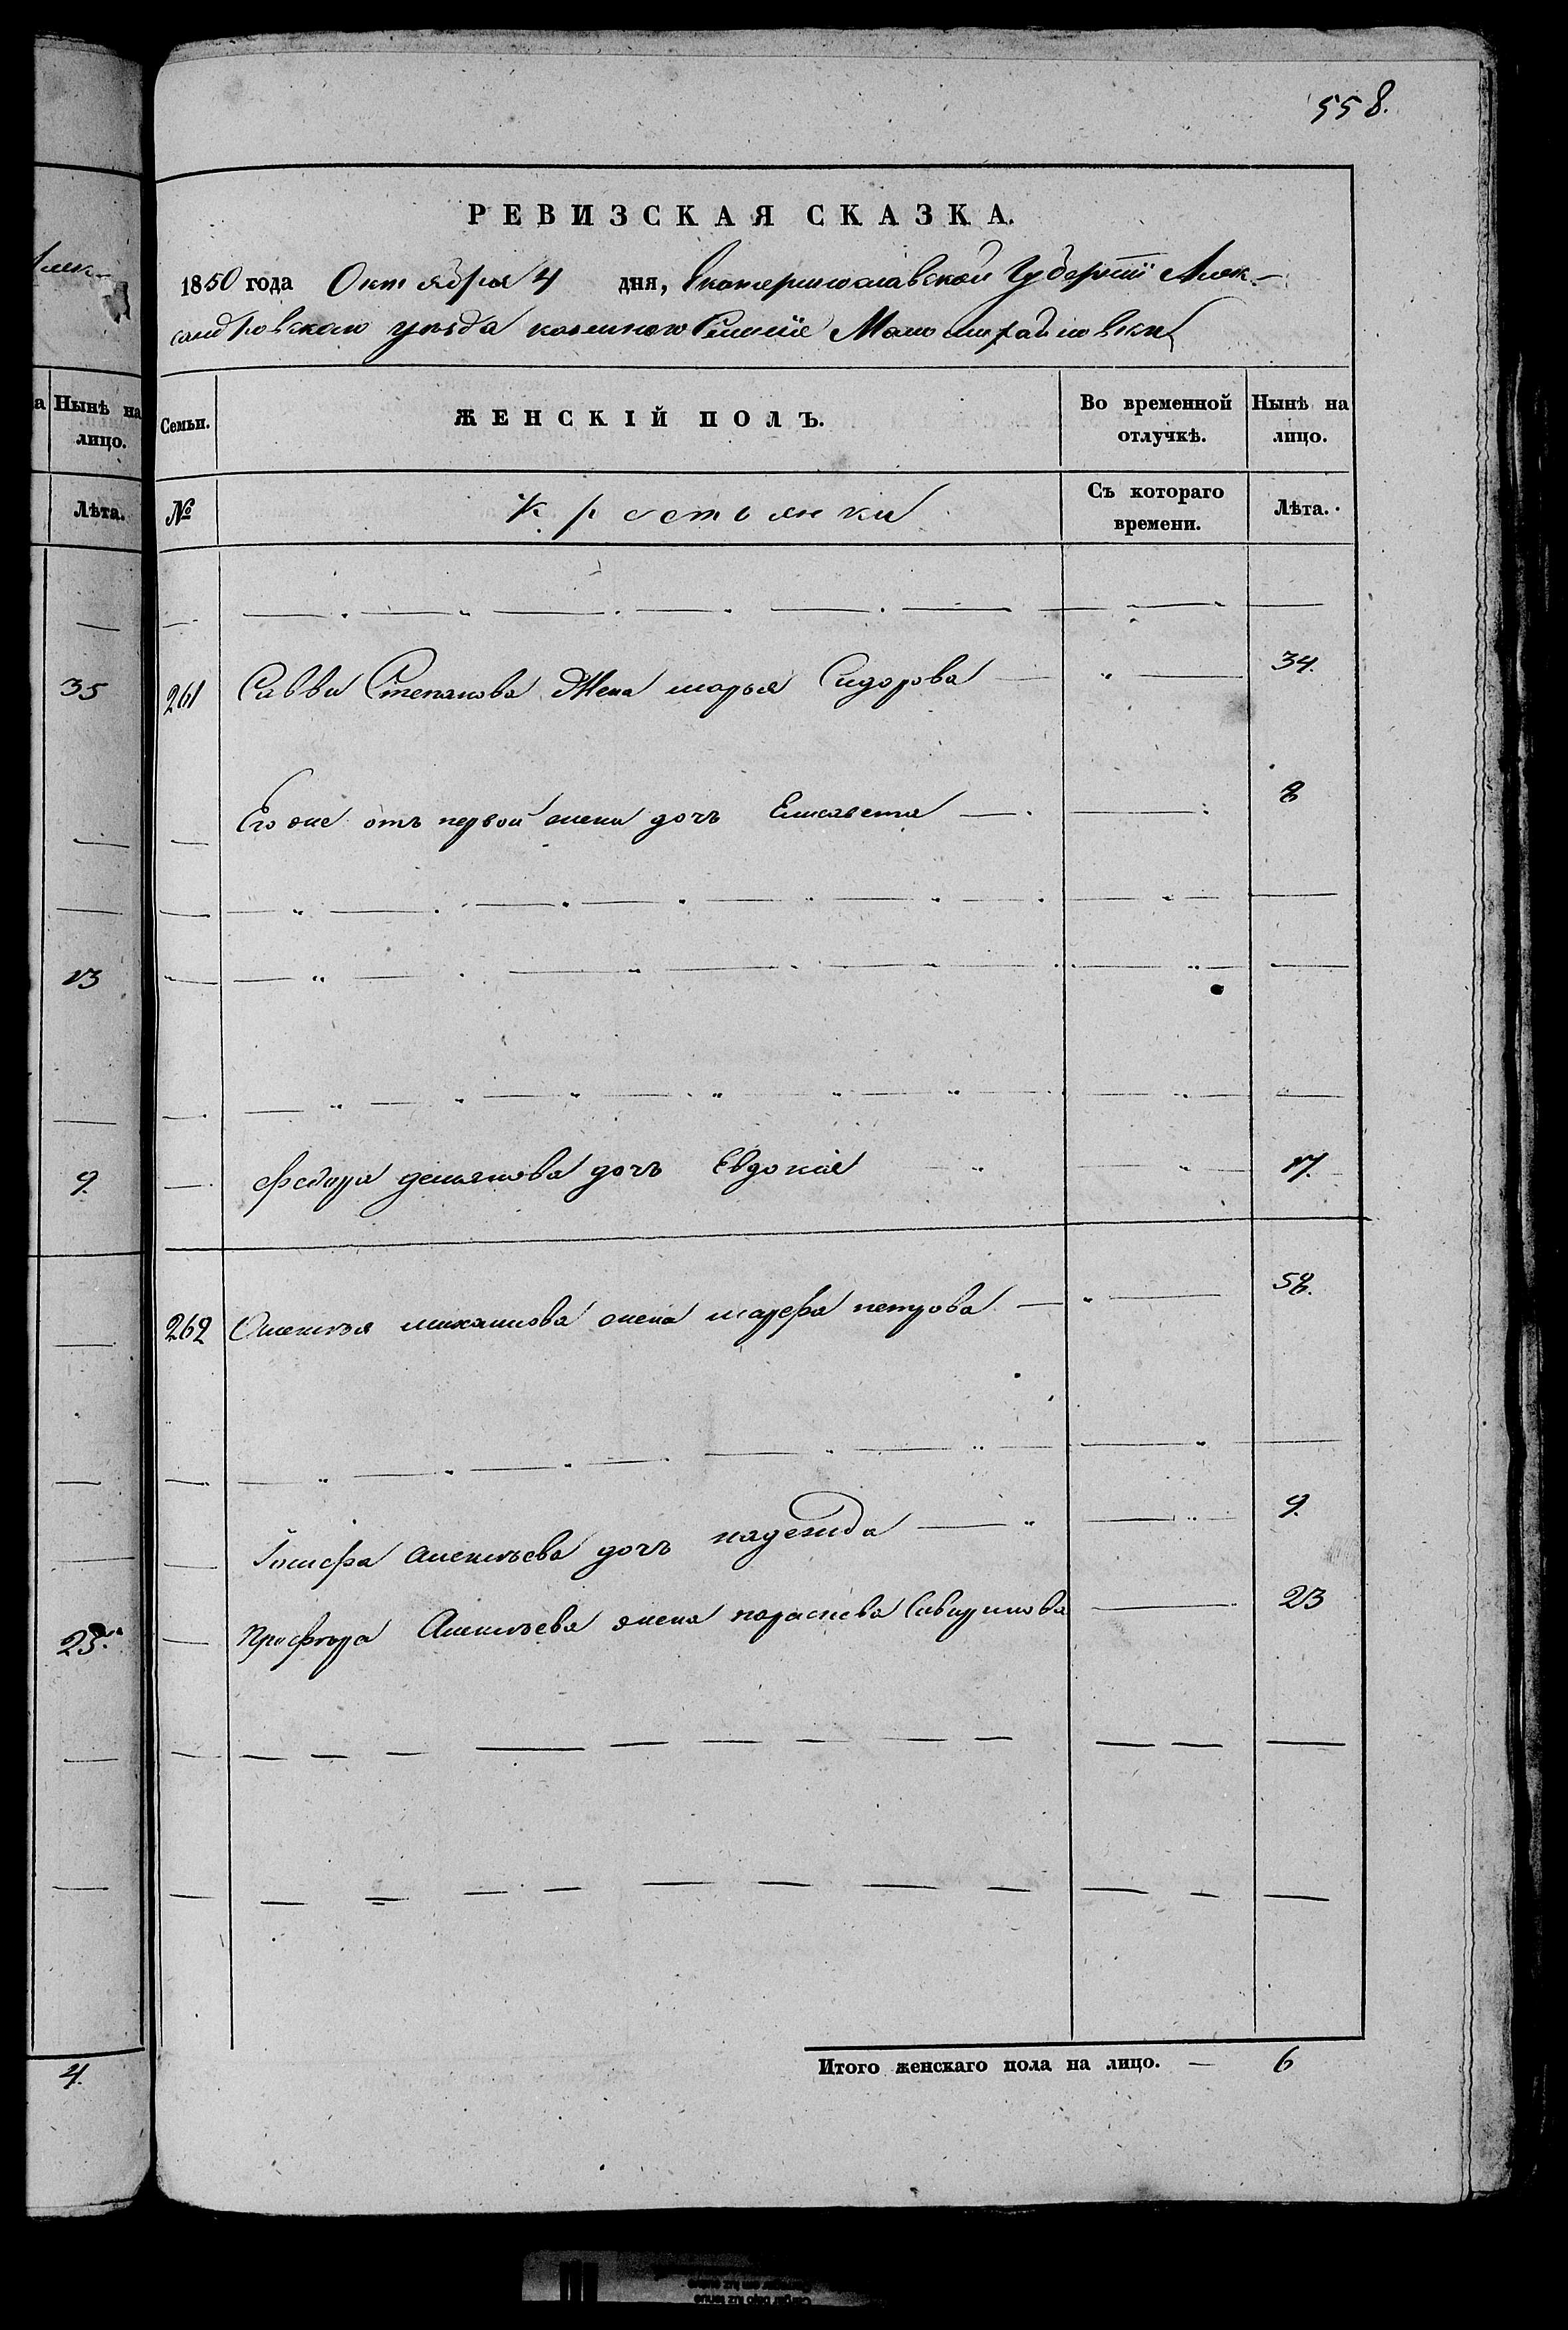 558.
РЕВИЗСКАЯ СКАЗКА.
1850 года Октября 4 дня, Екатеринославской Губернiи Алек-
сандровскаго уезда казеннаго Селенiя Мало михайловки
Нынѣ на лицо.
Лѣта.
35
13
9.
23.
4.
Семьи. ЖЕНСКІЙ ПОЛЪ. Во временной отлучкѣ. Нынѣ на лицо.
№ Крестьянки Съ котораго времени. Лѣта.
261 Саввы Степанова Жена марья Сидорова 34.
Его же отъ первой жены дочь Елисавета 8
Федора демянова дочь Евдокiя 17.
262 Алексея михайлова жена марфа петрова 58.
Iосифа алексѣева дочь надежда 9.
Алексѣева жена параскева 23
Итого женскаго пола на лицо. — 6